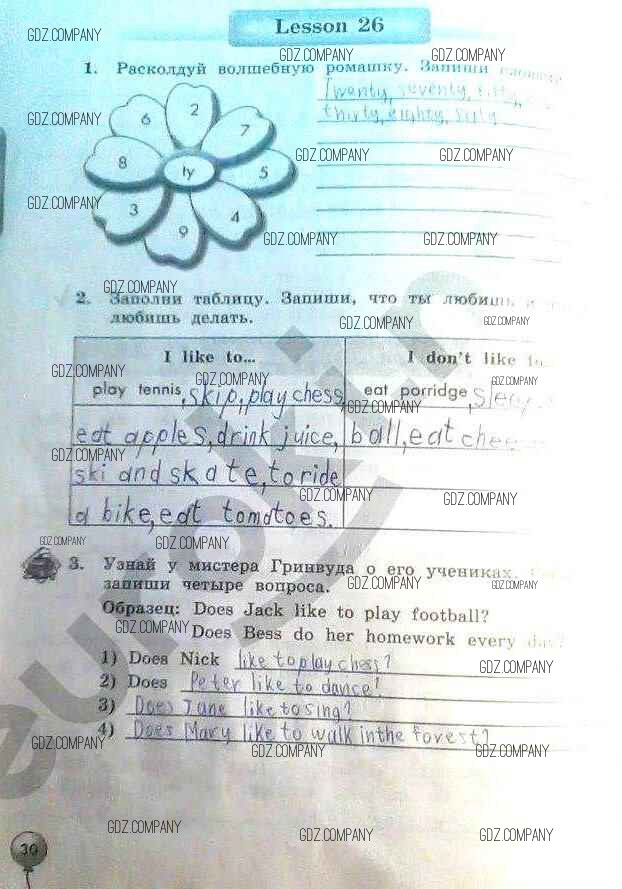 Lesson 26
1. Расколдуй волшебную ромашку. Запиши
Twenty, seventy, fifty,
thirty, eighty, sixty
2
6
7
8
ty
5
3
4
9
2. Заполни таблицу. Запиши, что ты любишь и
любишь делать.
I like to... I don't like to
play tennis, skip, play chess, eat porridge, sleep,
eat apples, drink juice, ball, eat
ski and skate, to ride
a bike, eat tomatoes.
3. Узнай у мистера Гринвуда о его учениках.
запиши четыре вопроса.
Образец: Does Jack like to play football?
Does Bess do her homework every day?
1) Does Nick like to play chess?
2) Does Peter like to dance?
3) Does Jane like to sing?
4) Does Mary like to walk in the forest?
30
GDZ.COMPANY
euroki